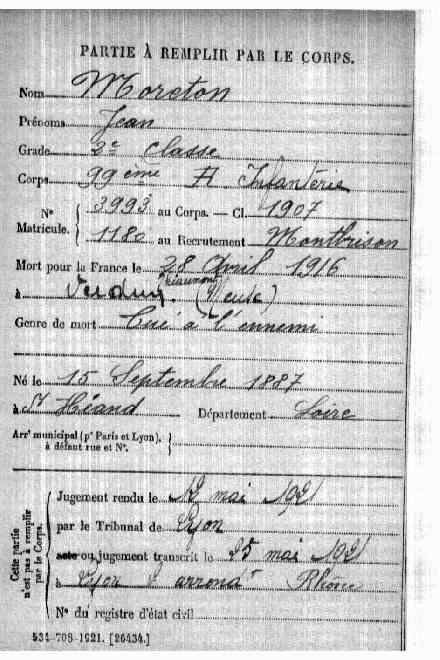 PARTIE À REMPLIR PAR LE CORPS.
Nom Moreton
Prénoms Jean
Grade 2e Classe
Corps 99ème RI Infanterie
N° Matricule. { 3993 au Corps. — Cl. 1907
1180 au Recrutement Montbrison
Mort pour la France le 28 Avril 1916
à Verdun. (Meuse)
Genre de mort Tué à l'ennemi
Né le 15 Septembre 1887
à St Héand Département Loire
Arrt municipal (pr Paris et Lyon), à défaut rue et N°. }
Cette partie n'est pas à remplir par le Corps.
Jugement rendu le 12 mai 1921
par le Tribunal de Lyon
acte ou jugement transcrit le 25 mai 1921
à Lyon arrondt Rhône
N° du registre d'état civil
534-708-1921. [26434.]